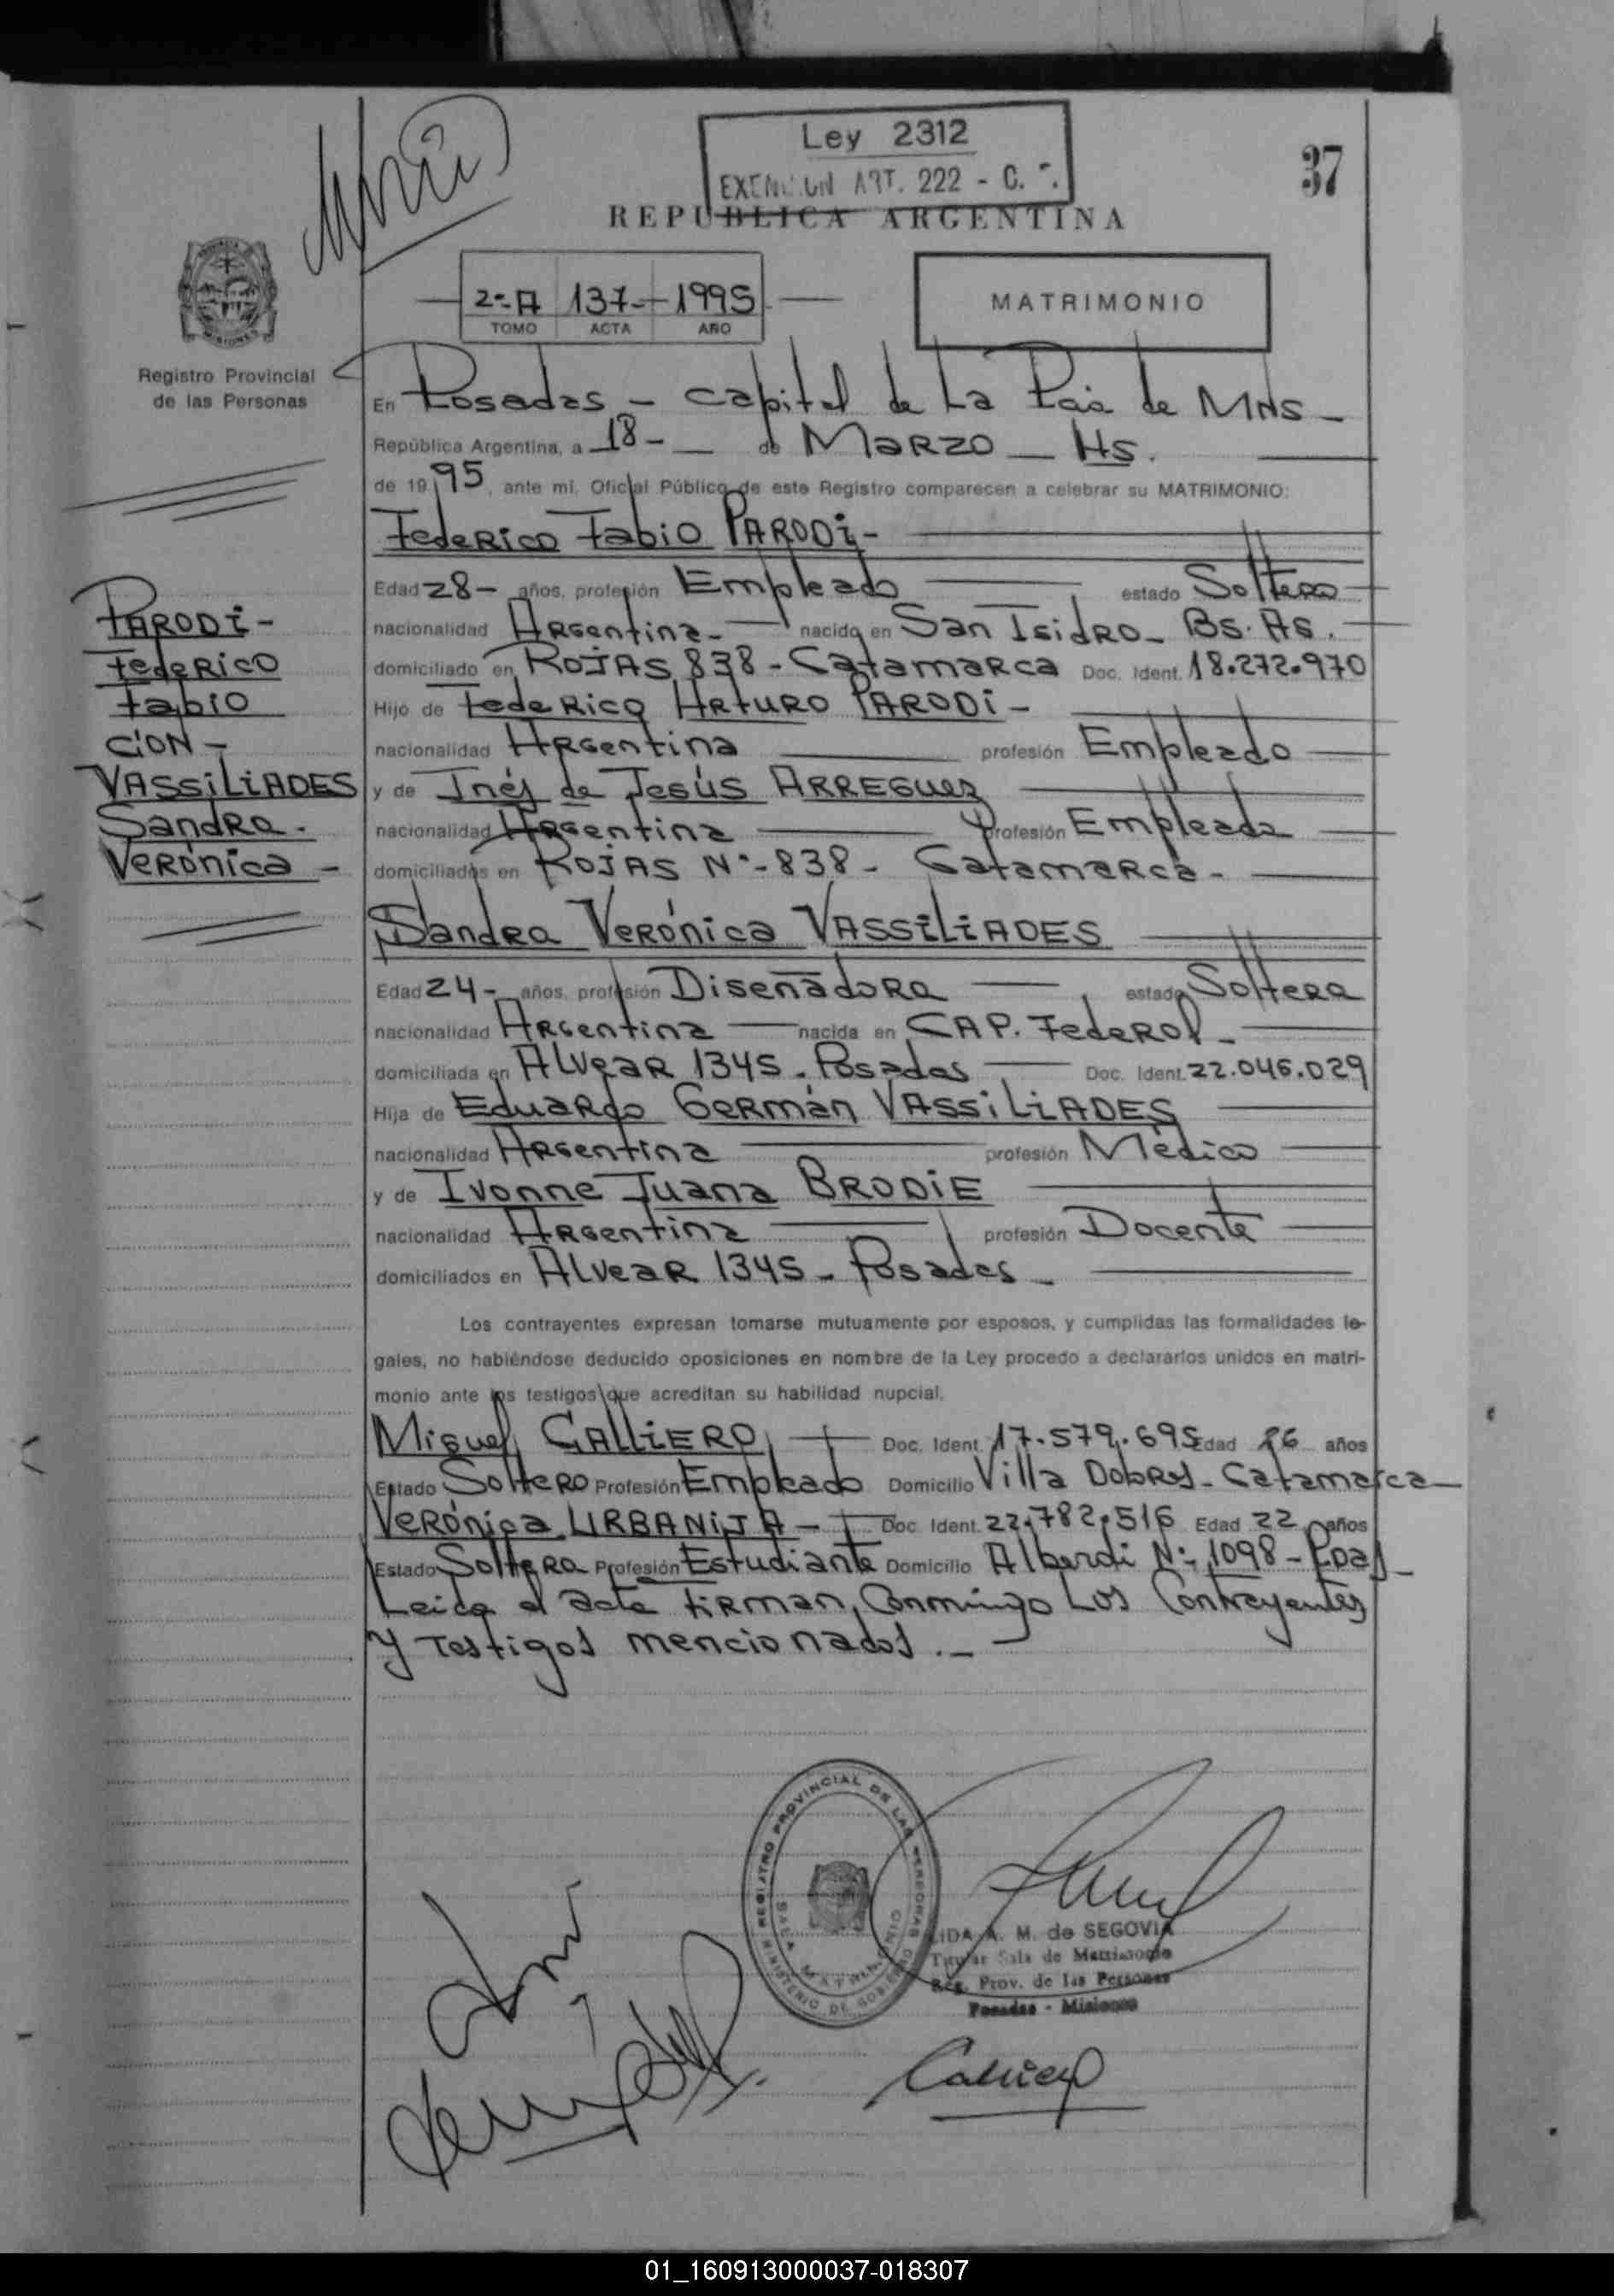 Ley 2312
EXENCION ART. 222 - C.
37
REPUBLICA ARGENTINA
2º-A 137.- 1995
TOMO ACTA AÑO
MATRIMONIO
Registro Provincial
de las Personas
En Posadas - Capital de La Pcia de MNS -
República Argentina, a 18 - de MARZO Hs.
de 19 95, ante mí, Oficial Público de este Registro comparecen a celebrar su MATRIMONIO:
Federico Fabio PARODi -
Edad 28 - años, profesión Empleado estado Soltero
nacionalidad Argentina - nacido en San Isidro - Bs. As.
domiciliado en ROJAS 838 - Catamarca Doc. Ident. 18.272.970
Hijo de Federico Arturo PARODi -
nacionalidad Argentina profesión Empleado
y de Inés de Jesús ARREGUEZ
nacionalidad Argentina profesión Empleada
domiciliados en ROJAS Nº - 838 - Catamarca -
PARODi -
Federico
Fabio
CiON -
VASSiLiADES
Sandra.
Verónica -
Sandra Verónica VASSiLiADES
Edad 24 - años, profesión Diseñadora estado Soltera
nacionalidad Argentina nacida en CAP. Federal -
domiciliada en Alvear 1345 - Posadas Doc. Ident. 22.046.029
Hija de Eduardo Germán VASSiLiADES
nacionalidad Argentina profesión Médico
y de Ivonne Juana BRODiE
nacionalidad Argentina profesión Docente
domiciliados en Alvear 1345 - Posadas -
Los contrayentes expresan tomarse mutuamente por esposos, y cumplidas las formalidades le-
gales, no habiéndose deducido oposiciones en nombre de la Ley procedo a declararlos unidos en matri-
monio ante los testigos que acreditan su habilidad nupcial.
Miguel GALLiERO Doc. Ident. 17.579.695 Edad 26 años
Estado Soltero Profesión Empleado Domicilio Villa Dolores - Catamarca
Verónica URBANiJA - Doc. Ident. 22.782.516 Edad 22 años
Estado Soltera Profesión Estudiante Domicilio Alberdi Nº 1098 - Pdas -
Leida el acta firman, Conmingo Los Contrayentes
y Testigos mencionados. -
REGISTRO PROVINCIAL DE LAS PERSONAS
MINISTERIO DE GOBIERNO
SALA MATRIMONIO
LIDA A. M. de SEGOVIA
Titular Sala de Matrimonio
Reg. Prov. de las Personas
Posadas - Misiones
01_160913000037-018307